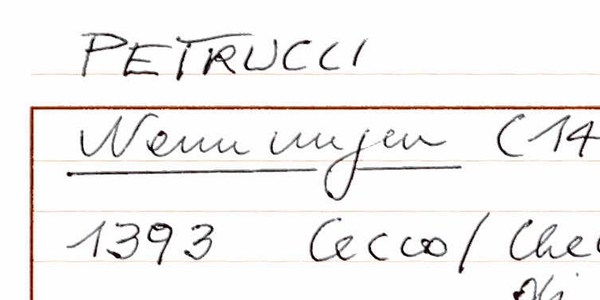 PETRUCCI
Nennungen (14
1393 Cecco/Che